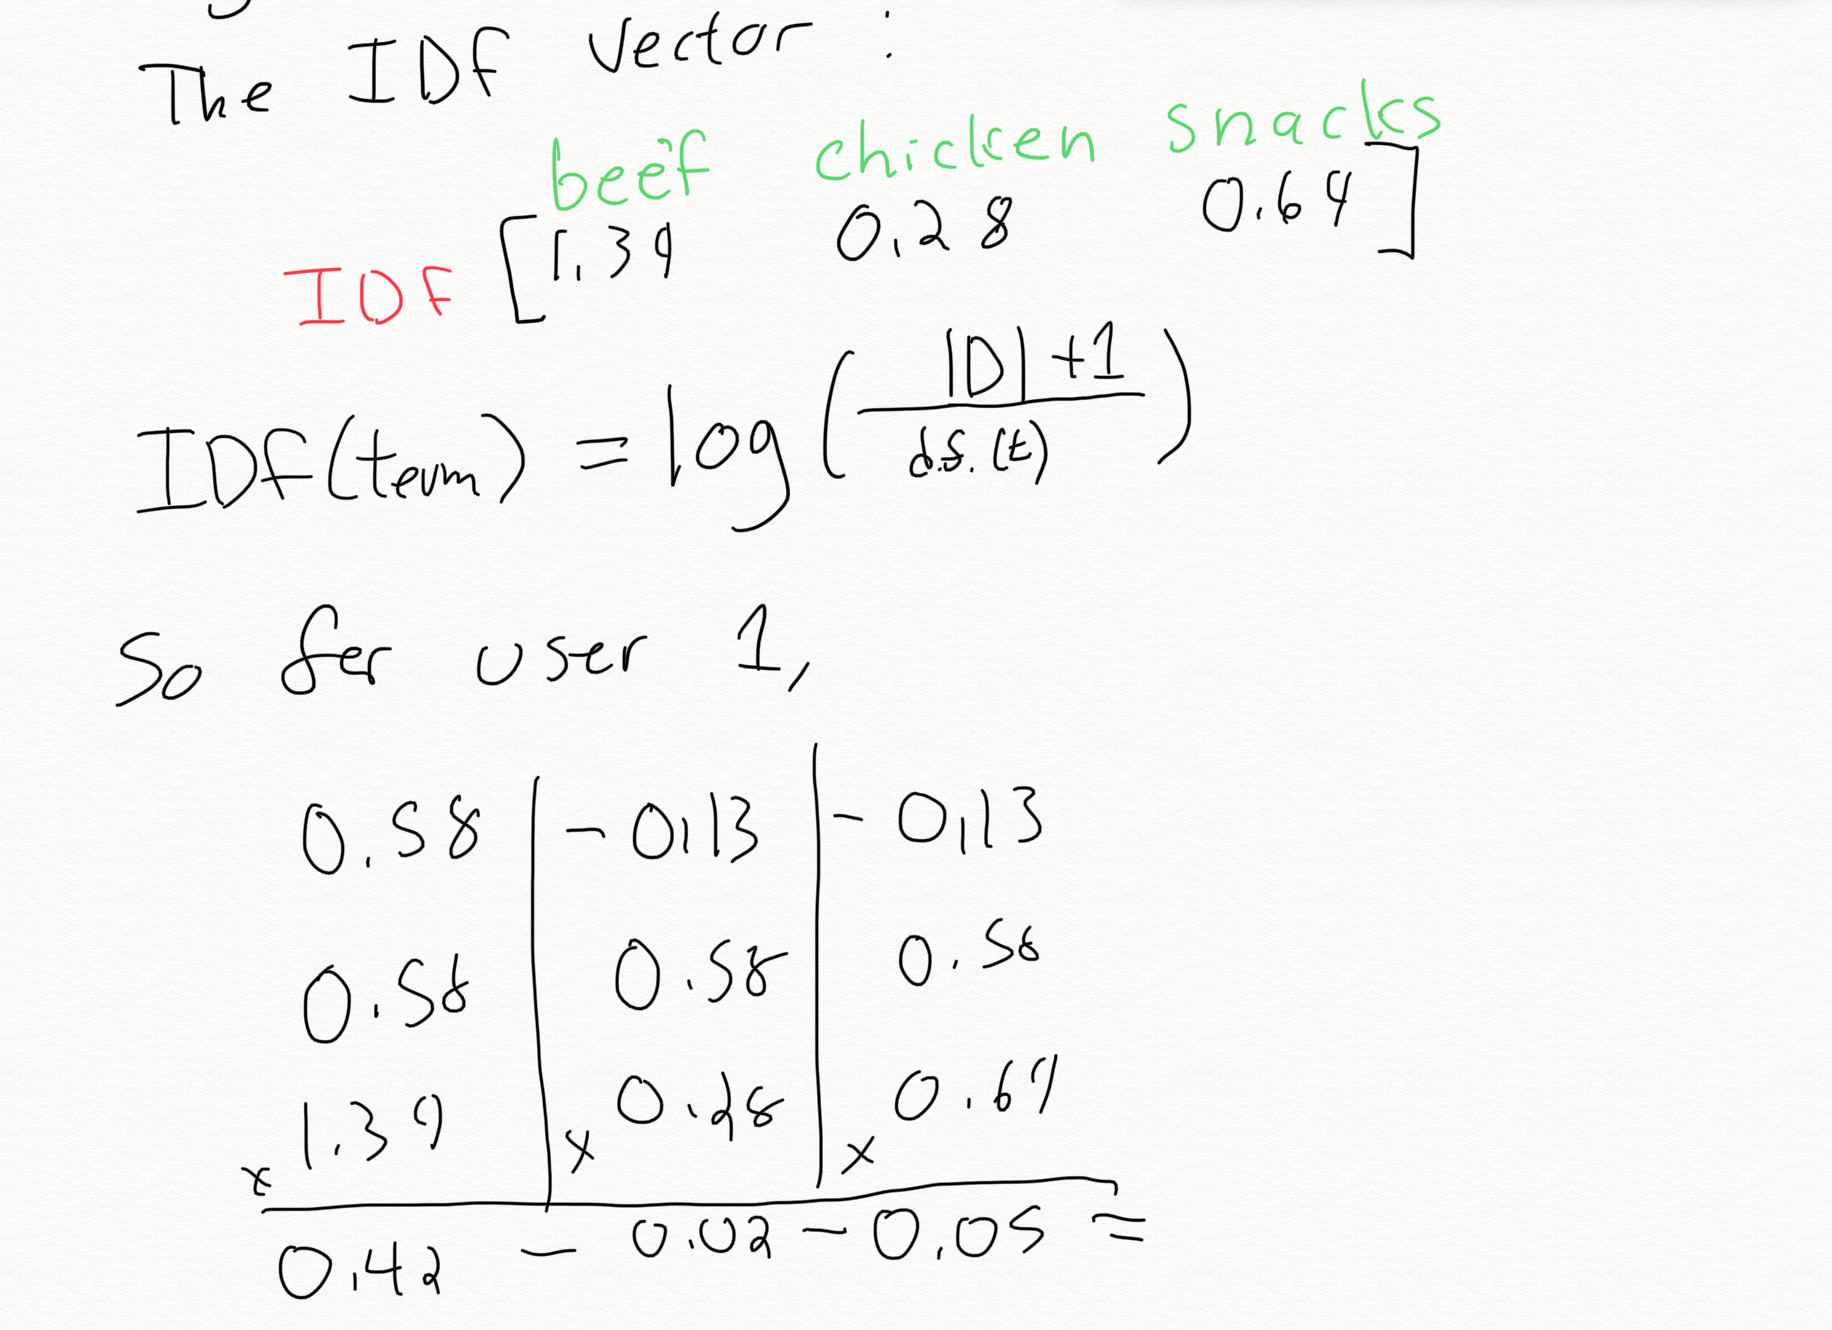 The IDF vector :
beef chicken snacks
IDF [1.39 0.28 0.69]
IDF(term) = log( |D| +1 / d.f.(t) )
So for user 1,
0.58 | - 0.13 | - 0.13
0.58 | 0.58 | 0.58
x 1.39 | x 0.28 | x 0.69
0.42 - 0.02 - 0.05 =